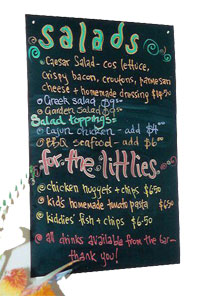 salads
Caesar Salad - cos lettuce,
crispy bacon, croutons, parmesan
cheese + homemade dressing $10.50
Greek salad $9.50
Garden salad $9.50
Salad toppings
Cajun chicken - add $4.00
BBQ seafood - add $6.00
for-the littlies
chicken nuggets + chips $6.50
kids homemade tomato pasta $6.50
kiddies fish + chips $6.50
all drinks available from the bar -
thank you!